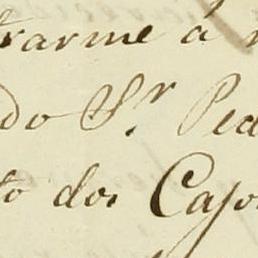 trarme á
do Sr. Ped
to dos Cajo